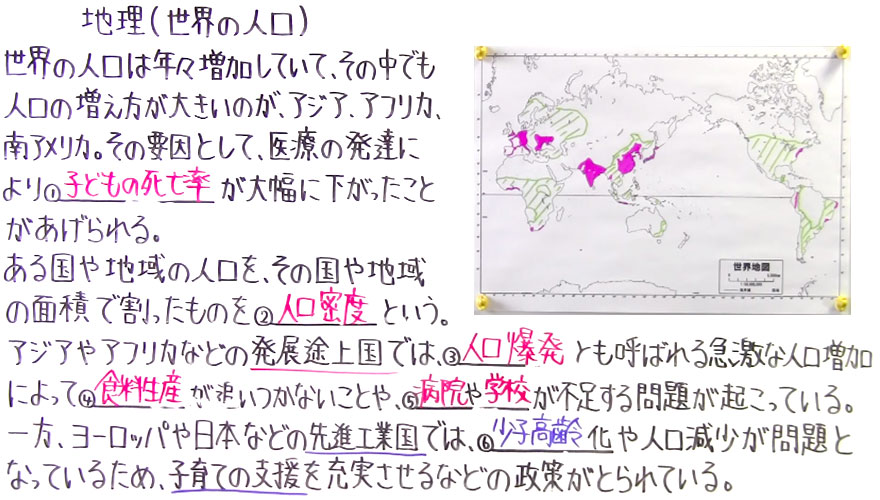 地理(世界の人口)
世界の人口は年々増加していて、その中でも
人口の増え方が大きいのが、アジア、アフリカ、
南アメリカ。その要因として、医療の発達に
より①子どもの死亡率が大幅に下がったこと
があげられる。
ある国や地域の人口を、その国や地域
の面積で割ったものを②人口密度という。
アジアやアフリカなどの発展途上国では、③人口爆発とも呼ばれる急激な人口増加
によって④食料生産が追いつかないことや、⑤病院や学校が不足する問題が起こっている。
一方、ヨーロッパや日本などの先進工業国では、⑥少子高齢化や人口減少が問題と
なっているため、子育ての支援を充実させるなどの政策がとられている。
世界地図